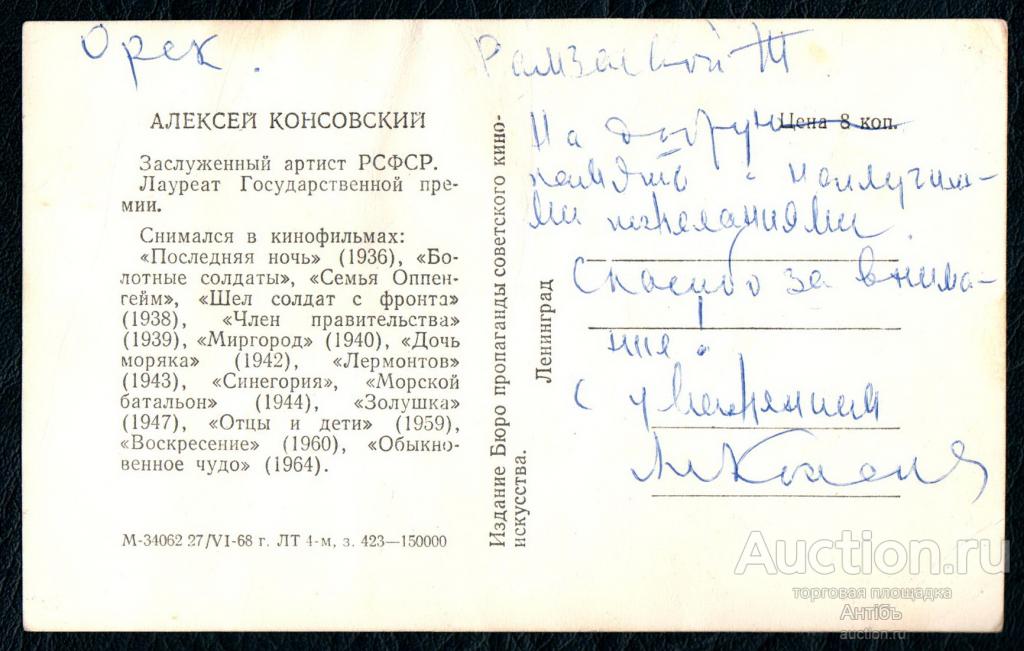 Орск.
Рамзаевой Т
АЛЕКСЕЙ КОНСОВСКИЙ
Заслуженный артист РСФСР.
Лауреат Государственной пре-
мии.
Снимался в кинофильмах:
«Последняя ночь» (1936), «Бо-
лотные солдаты», «Семья Оппен-
гейм», «Шел солдат с фронта»
(1938), «Член правительства»
(1939), «Миргород» (1940), «Дочь
моряка» (1942), «Лермонтов»
(1943), «Синегория», «Морской
батальон» (1944), «Золушка»
(1947), «Отцы и дети» (1959),
«Воскресение» (1960), «Обыкно-
венное чудо» (1964).
М-34062 27/VI-68 г. ЛТ 4-м, з. 423—150000
Издание Бюро пропаганды советского кино-
искусства.
Ленинград
Цена 8 коп.
На добрую
память с наилучши-
ми пожеланиями.
Спасибо за внима-
ние!
С уважением
Auction.ru
торговая площадка
Антiбъ
auction.ru